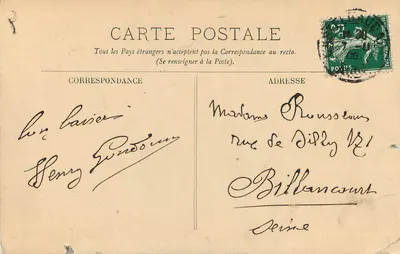 CARTE POSTALE
Tous les Pays étrangers n'acceptent pas la Correspondance au recto.
(Se renseigner à la Poste).
CORRESPONDANCE
ADRESSE
Henry
Madame
rue de Silly 121
Billancourt
Seine